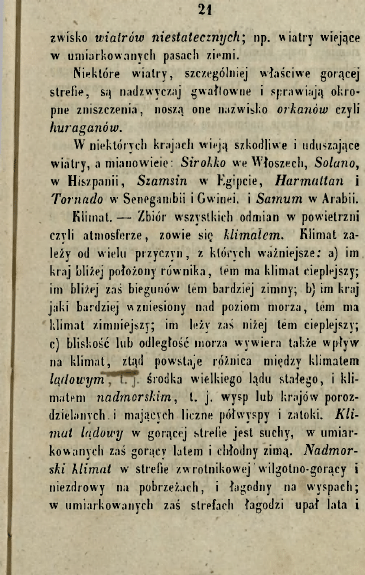 21
zwisko wiatrów niestatecznych; np. wiatry wiejące
w umiarkowanych pasach ziemi.
Niektóre wiatry, szczególniej właściwe gorącej
strefie, są nadzwyczaj gwałtowne i sprawiają okro-
pne zniszczenia, noszą one nazwisko orkanów czyli
huraganów.
W niektórych krajach wieją szkodliwe i uduszające
wiatry, a mianowicie: Sirokko we Włoszech, Solano,
w Hiszpanii, Szamsin w Egipcie, Harmattan i
Tornado w Senegambii i Gwinei, i Samum w Arabii.
Klimat. — Zbiór wszystkich odmian w powietrzni
czyli atmosferze, zowie się klimatem. Klimat za-
leży od wielu przyczyn, z których ważniejsze: a) im
kraj bliżej położony równika, tem ma klimat cieplejszy;
im bliżej zaś biegunów tem bardziej zimny; b) im kraj
jaki bardziej wzniesiony nad poziom morza, tem ma
klimat zimniejszy; im leży zaś niżej tem cieplejszy;
c) bliskość lub odległość morza wywiera także wpływ
na klimat, ztąd powstaje różnica między klimatem
lądowym, t. j. środka wielkiego lądu stałego, i kli-
matem nadmorskim, t. j. wysp lub krajów poroz-
dzielanych i mających liczne półwyspy i zatoki. Kli-
mat lądowy w gorącej strefie jest suchy, w umiar-
kowanych zaś gorący latem i chłodny zimą. Nadmor-
ski klimat w strefie zwrotnikowej wilgotno-gorący i
niezdrowy na pobrzeżach, i łagodny na wyspach;
w umiarkowanych zaś strefach łagodzi upał lata i